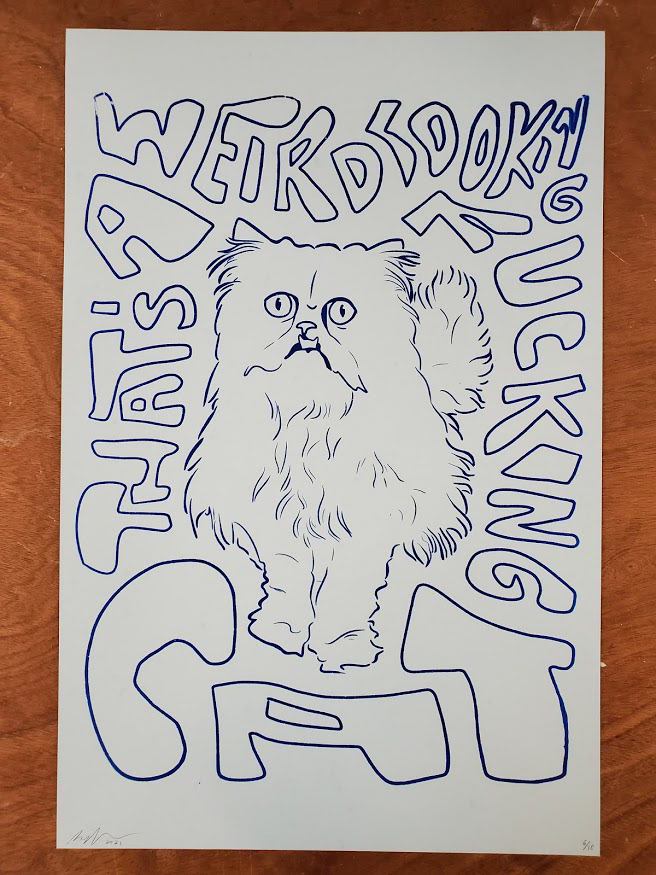 THAT'S A
WEIRD LOOKING
FUCKING
CAT
2021